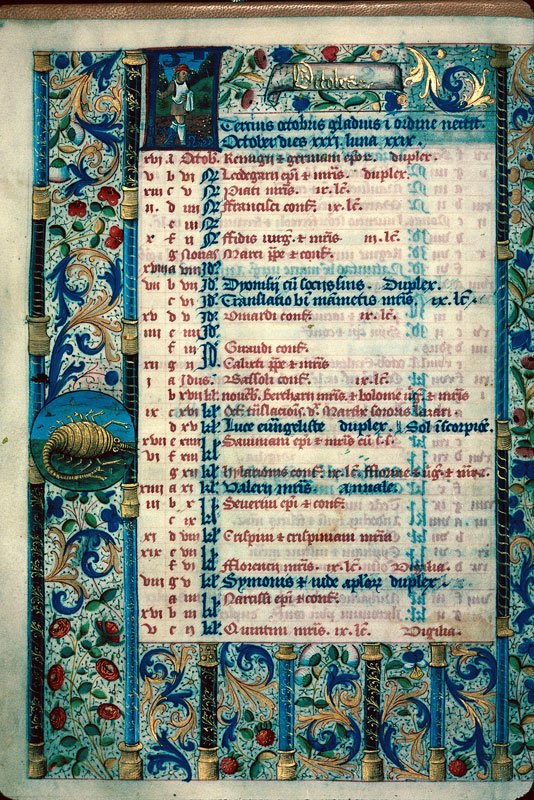 Octobris
Tertius octobris gladius i ordine nectit
October dies xxxi. luna xxix.
xvi a Octob. Remigii et germani epor. duplex.
v b vi N Ledegarii epi et mris. duplex.
xiii c v N Piati mris. ix. lc.
ii d iiii N ffrancisci conf. ix. lc.
e iii N
x f ii N ffidis virg. et mris iii. lc.
g Nonas Marci ppe et conf.
xviii a viii Id.
vii b vii Id. Dyonisii cu sociis suis. Duplex.
c vi Id. Translatio bi mametis mris. ix. lc.
xv d v Id. conf. ix. lc.
iiii e iiii Id.
f iii Id. Giraudi conf.
xii g ii Id Calixti ppe et mris
i a Idus. Basoli conf. ix. lc.
b xvii kl. noveb. bercharii mris. et
ix c xvi kl Marthe sororis lazari
d xv kl Luce evvgeliste duplex. Sol i scorpioe.
xvii e xiiii kl Saviniani epi et mris cu s. s.
vi f xiii kl
g xii kl Hylarionis conf. ix. lc. et vg. et mr.
xiiii a xi kl Valerii mris. annuale.
iii b x kl Severini epi et conf.
c ix kl
xi d viii kl Crispini et crispiniani mris
xix e vii kl
f vi kl fflorencii mris. ix. lc. Vigilia.
viii g v kl Symonis et iude aplor duplex.
a iiii kl Narcissi epi et conf.
xvi b iii kl
v c ii kl Quintini mris. ix. lc. Vigilia.